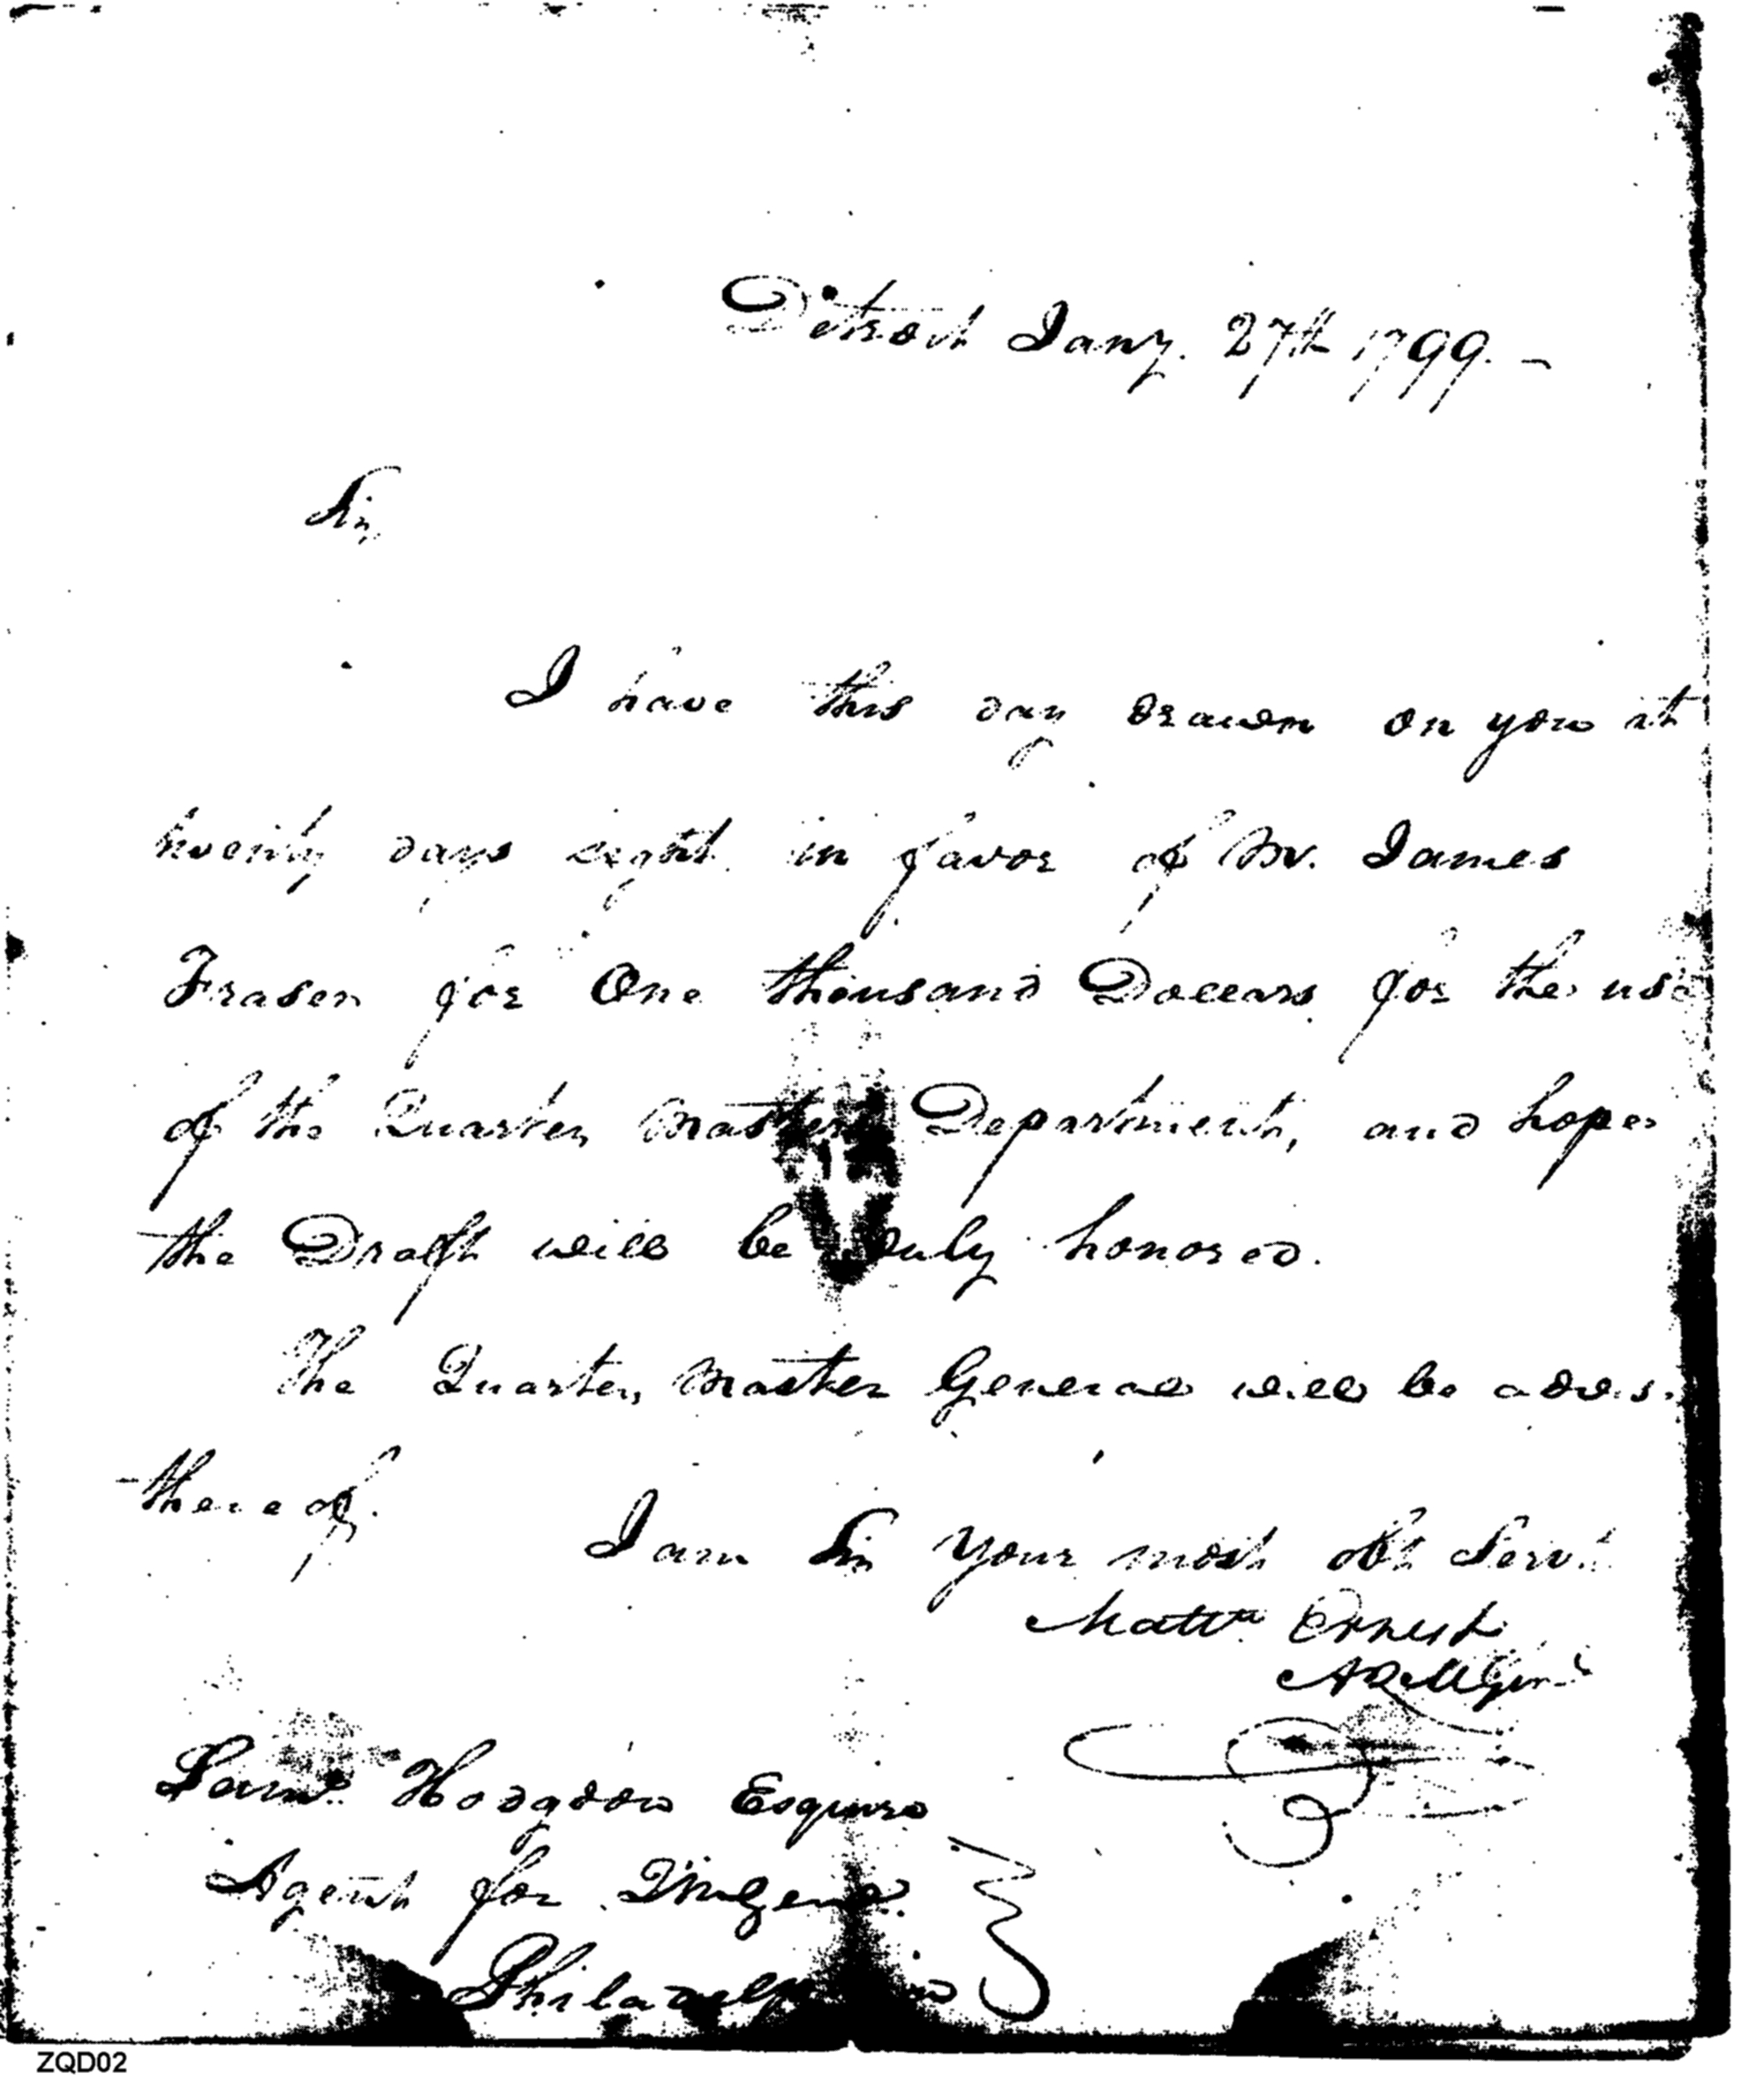 Detroit Jany. 27th 1799. -
Sir,
I have this day drawn on you at
twenty days sight in favor of Mr. James
Fraser for One thousand Dollars for the use
of the Quarter Master Department, and hope
the Draft will be duly honored.
The Quarter Master General will be advis.
thereof.
I am Sir your most obt Servt
Matthw Ernest
AQMGenl
Saml Hodgdon Esquire
Agent for QMGenl.
Philadelphia
ZQD02